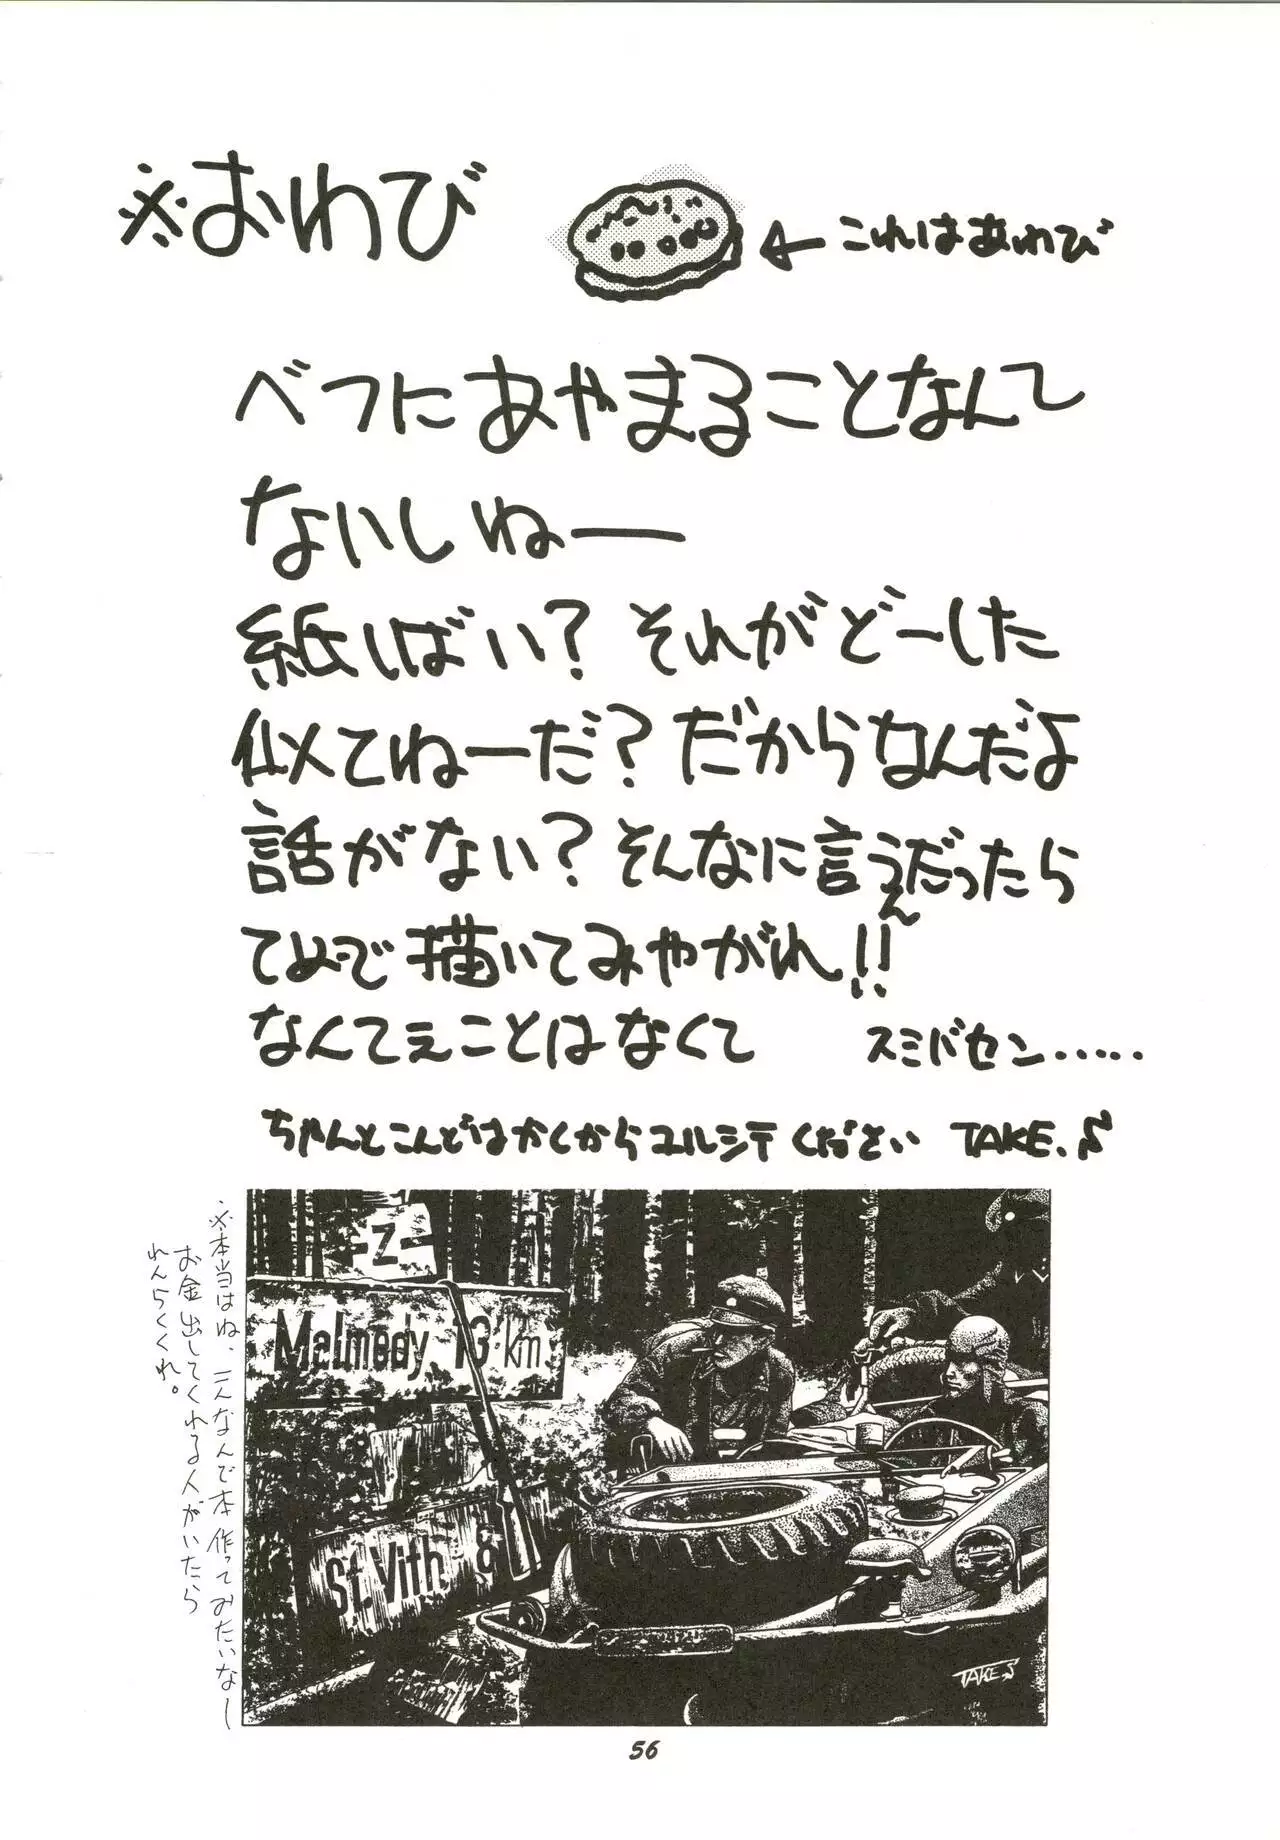 ※おわび
←これはあわび
べつにあやまることなんて
ないしねー
紙しばい?それがどーした
似てねーだ?だからなんだよ
話がない?そんなに言うんだったら
てめーで描いてみやがれ!!
なんてぇことはなくて スミバセン……
ちゃんとこんどはかくからユルシテください TAKE.S
※本当はね、こんなんで本作ってみたいなー
お金出してくれる人がいたら
れんらくくれ。
-Z-
Malmedy 13 km
St.Vith 8
TAKE.S
56